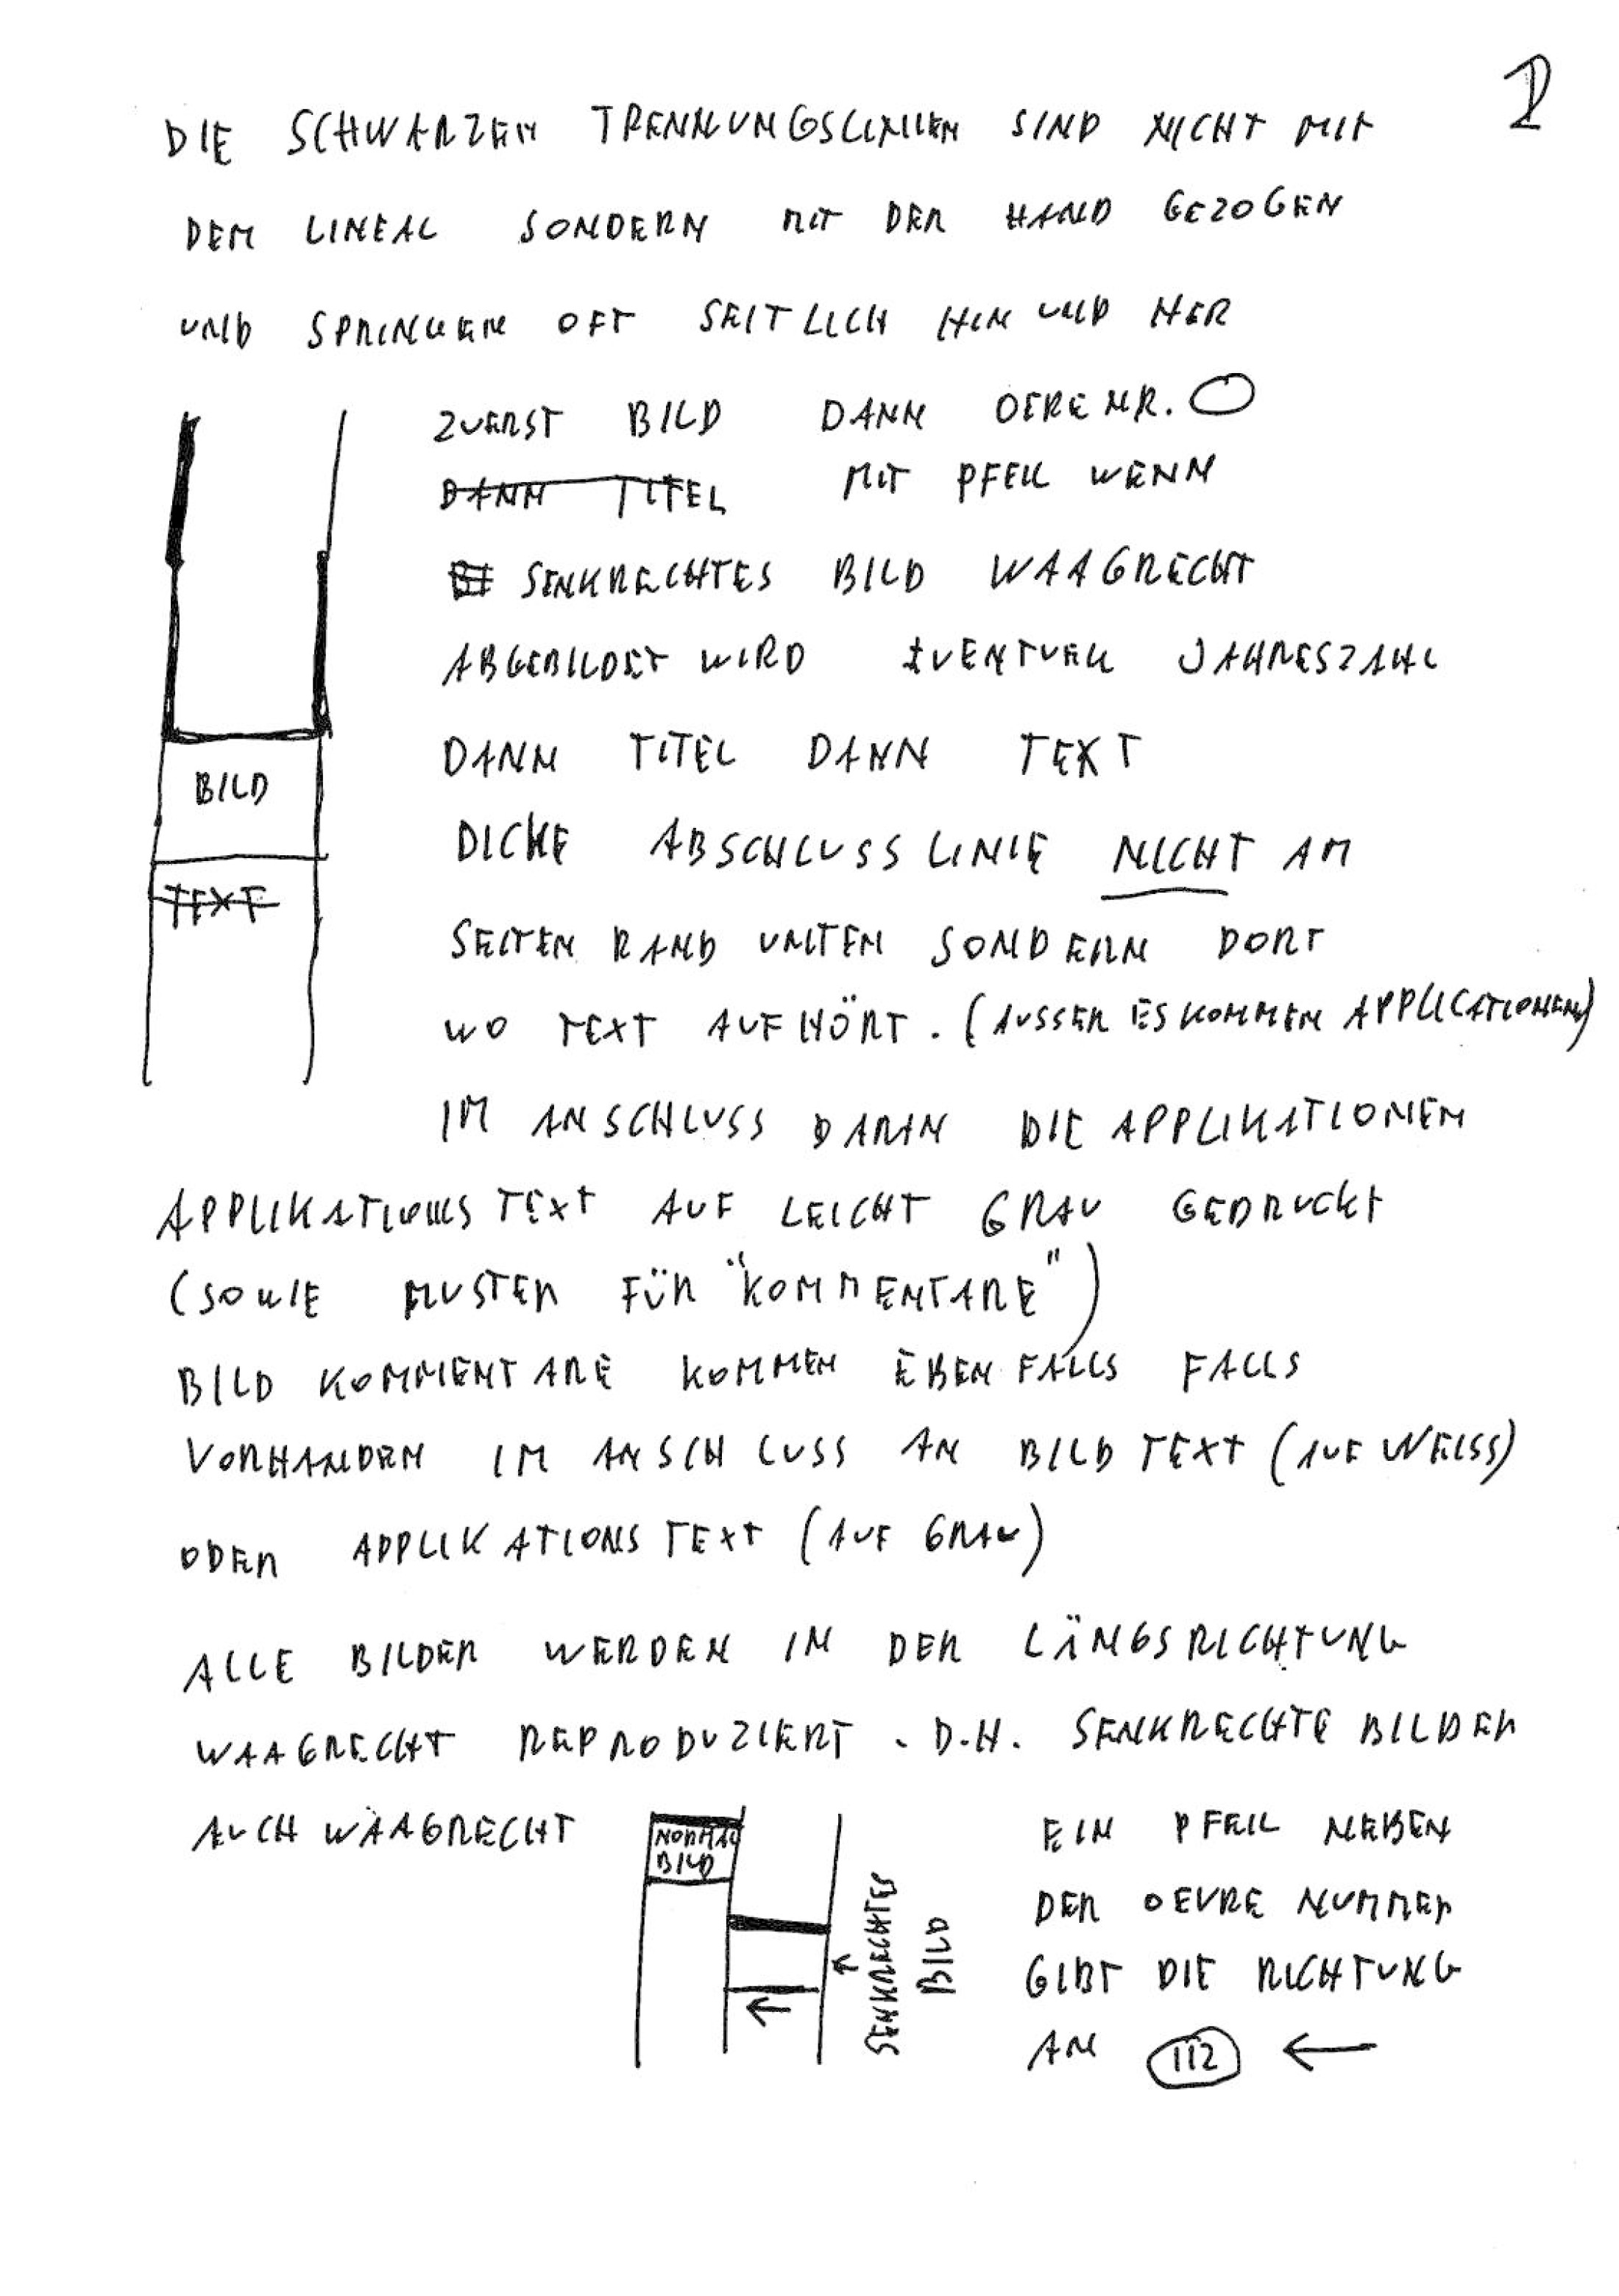 1
DIE SCHWARZEN TRENNUNGSLINIEN SIND NICHT MIT
DEM LINEAL SONDERN MIT DER HAND GEZOGEN
UND SPRINGEN OFT SEITLICH HIN UND HER
ZUERST BILD DANN OERE NR.
DANN TITEL MIT PFEIL WENN
SENKRECHTES BILD WAAGRECHT
ABGEBILDET WIRD EVENTUELL JAHRESZAHL
DANN TITEL DANN TEXT
BILD
DICKE ABSCHLUSSLINIE NICHT AM
TEXT
SEITEN RAND UNTEN SONDERN DORT
WO TEXT AUFHÖRT. (AUSSER ES KOMMEN APPLICATIONEN)
IM ANSCHLUSS DARAN DIE APPLIKATIONEN
APPLIKATIONS TEXT AUF LEICHT GRAU GEDRUCKT
(SOWIE MUSTER FÜR "KOMMENTARE")
BILD KOMMENTARE KOMMEN EBENFALLS FALLS
VORHANDEN IM ANSCHLUSS AN BILD TEXT (AUF WEISS)
ODER APPLIKATIONS TEXT (AUF GRAU)
ALLE BILDER WERDEN IN DER LÄNGSRICHTUNG
WAAGRECHT REPRODUZIERT. D.H. SENKRECHTE BILDER
AUCH WAAGRECHT
NORMAL
BILD
SENKRECHTES
BILD
EIN PFEIL NEBEN
DER OEVRE NUMMER
GIBT DIE RICHTUNG
AN 112 ←